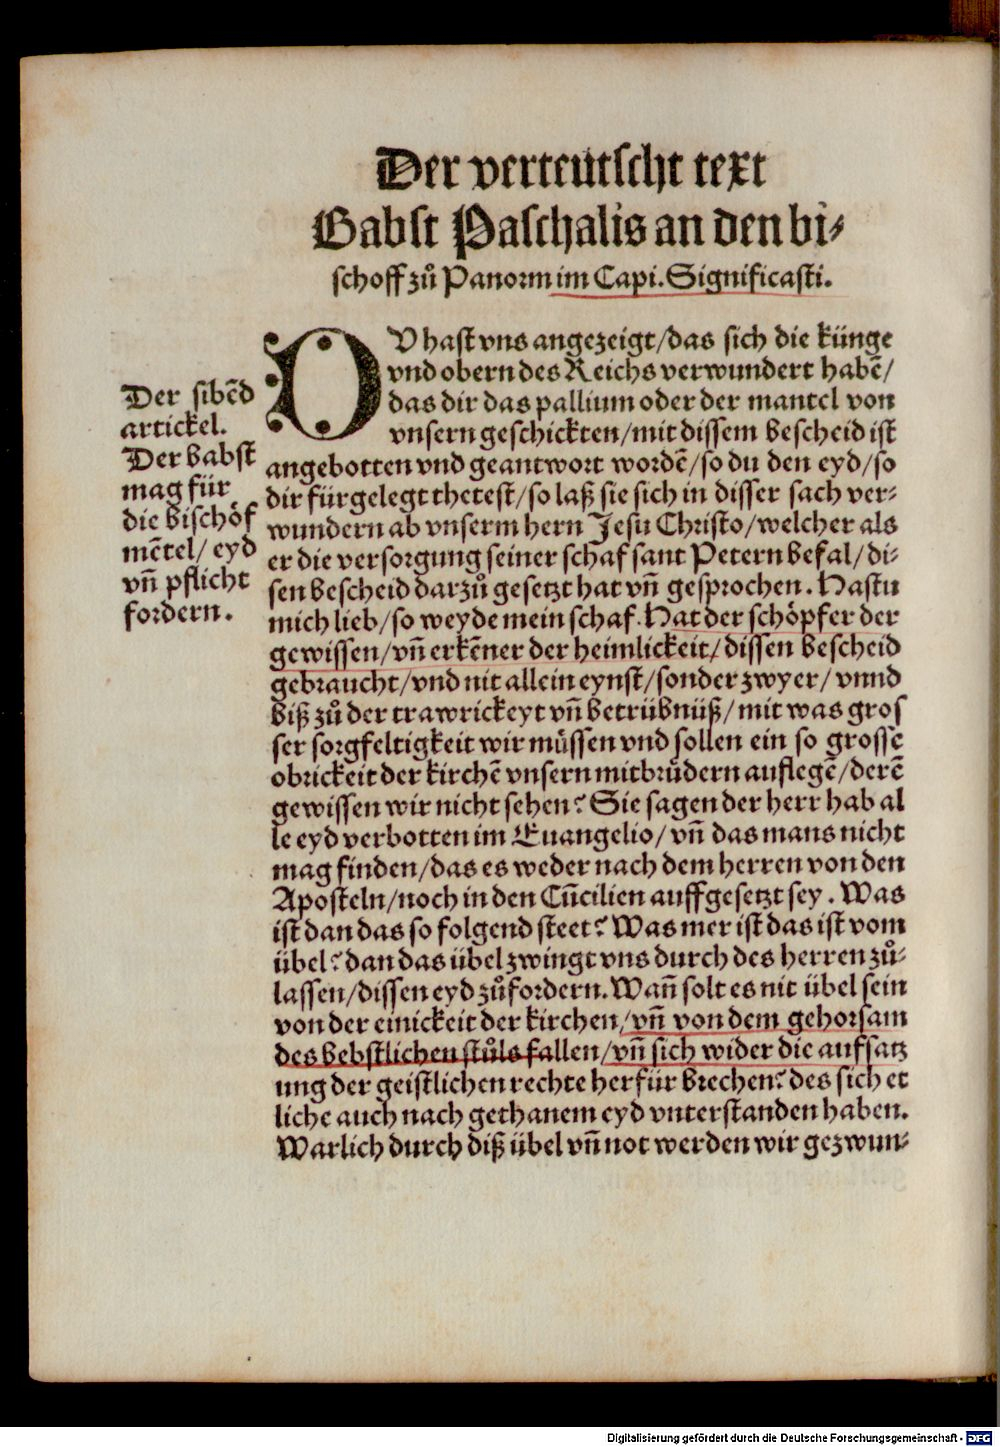 Der verteutscht text
Babst Paschalis an den bi⸗
schoff zů Panorm im Capi. Significasti.
Der sibēd
artickel.
Der babst
mag für
die bischöf
mētel/ eyd
vñ pflicht
fordern.
DV hast vns angezeigt/das sich die künge
vnd obern des Reichs verwundert habē/
das dir das pallium oder der mantel von
vnsern geschickten/mit dissem bescheid ist
angebotten vnd geantwort wordē/so du den eyd/so
dir fürgelegt thetest/so laß sie sich in disser sach ver⸗
wundern ab vnserm hern Jesu Christo/welcher als
er die versorgung seiner schaf sant Petern befal/di⸗
sen bescheid darzů gesetzt hat vñ gesprochen. Hastu
mich lieb/so weyde mein schaf. Hat der schöpfer der
gewissen/vñ erkēner der heimlickeit/dissen bescheid
gebraucht/vnd nit allein eynst/sonder zwyer/ vnnd
biß zů der trawrickeyt vñ betrübnüß/mit was gros
ser sorgfeltigkeit wir müssen vnd sollen ein so grosse
obrickeit der kirchē vnsern mitbrüdern auflegē/derē
gewissen wir nicht sehen? Sie sagen der herr hab al
le eyd verbotten im Euangelio/ vñ das mans nicht
mag finden/das es weder nach dem herren von den
Aposteln/noch in den Cūcilien auffgesetzt sey. Was
ist dan das so folgend steet? Was mer ist das ist vom
übel? dan das übel zwingt vns durch des herren zů⸗
lassen/dissen eyd zůfordern. Wañ solt es nit übel sein
von der einickeit der kirchen/vñ von dem gehorsam
des bebstlichen stůls fallen/vñ sich wider die aufsatz
ung der geistlichen rechte herfür brechen? des sich et
liche auch nach gethanem eyd vnterstanden haben.
Warlich durch diß übel vñ not werden wir gezwun⸗
Digitalisierung gefördert durch die Deutsche Forschungsgemeinschaft - DFG